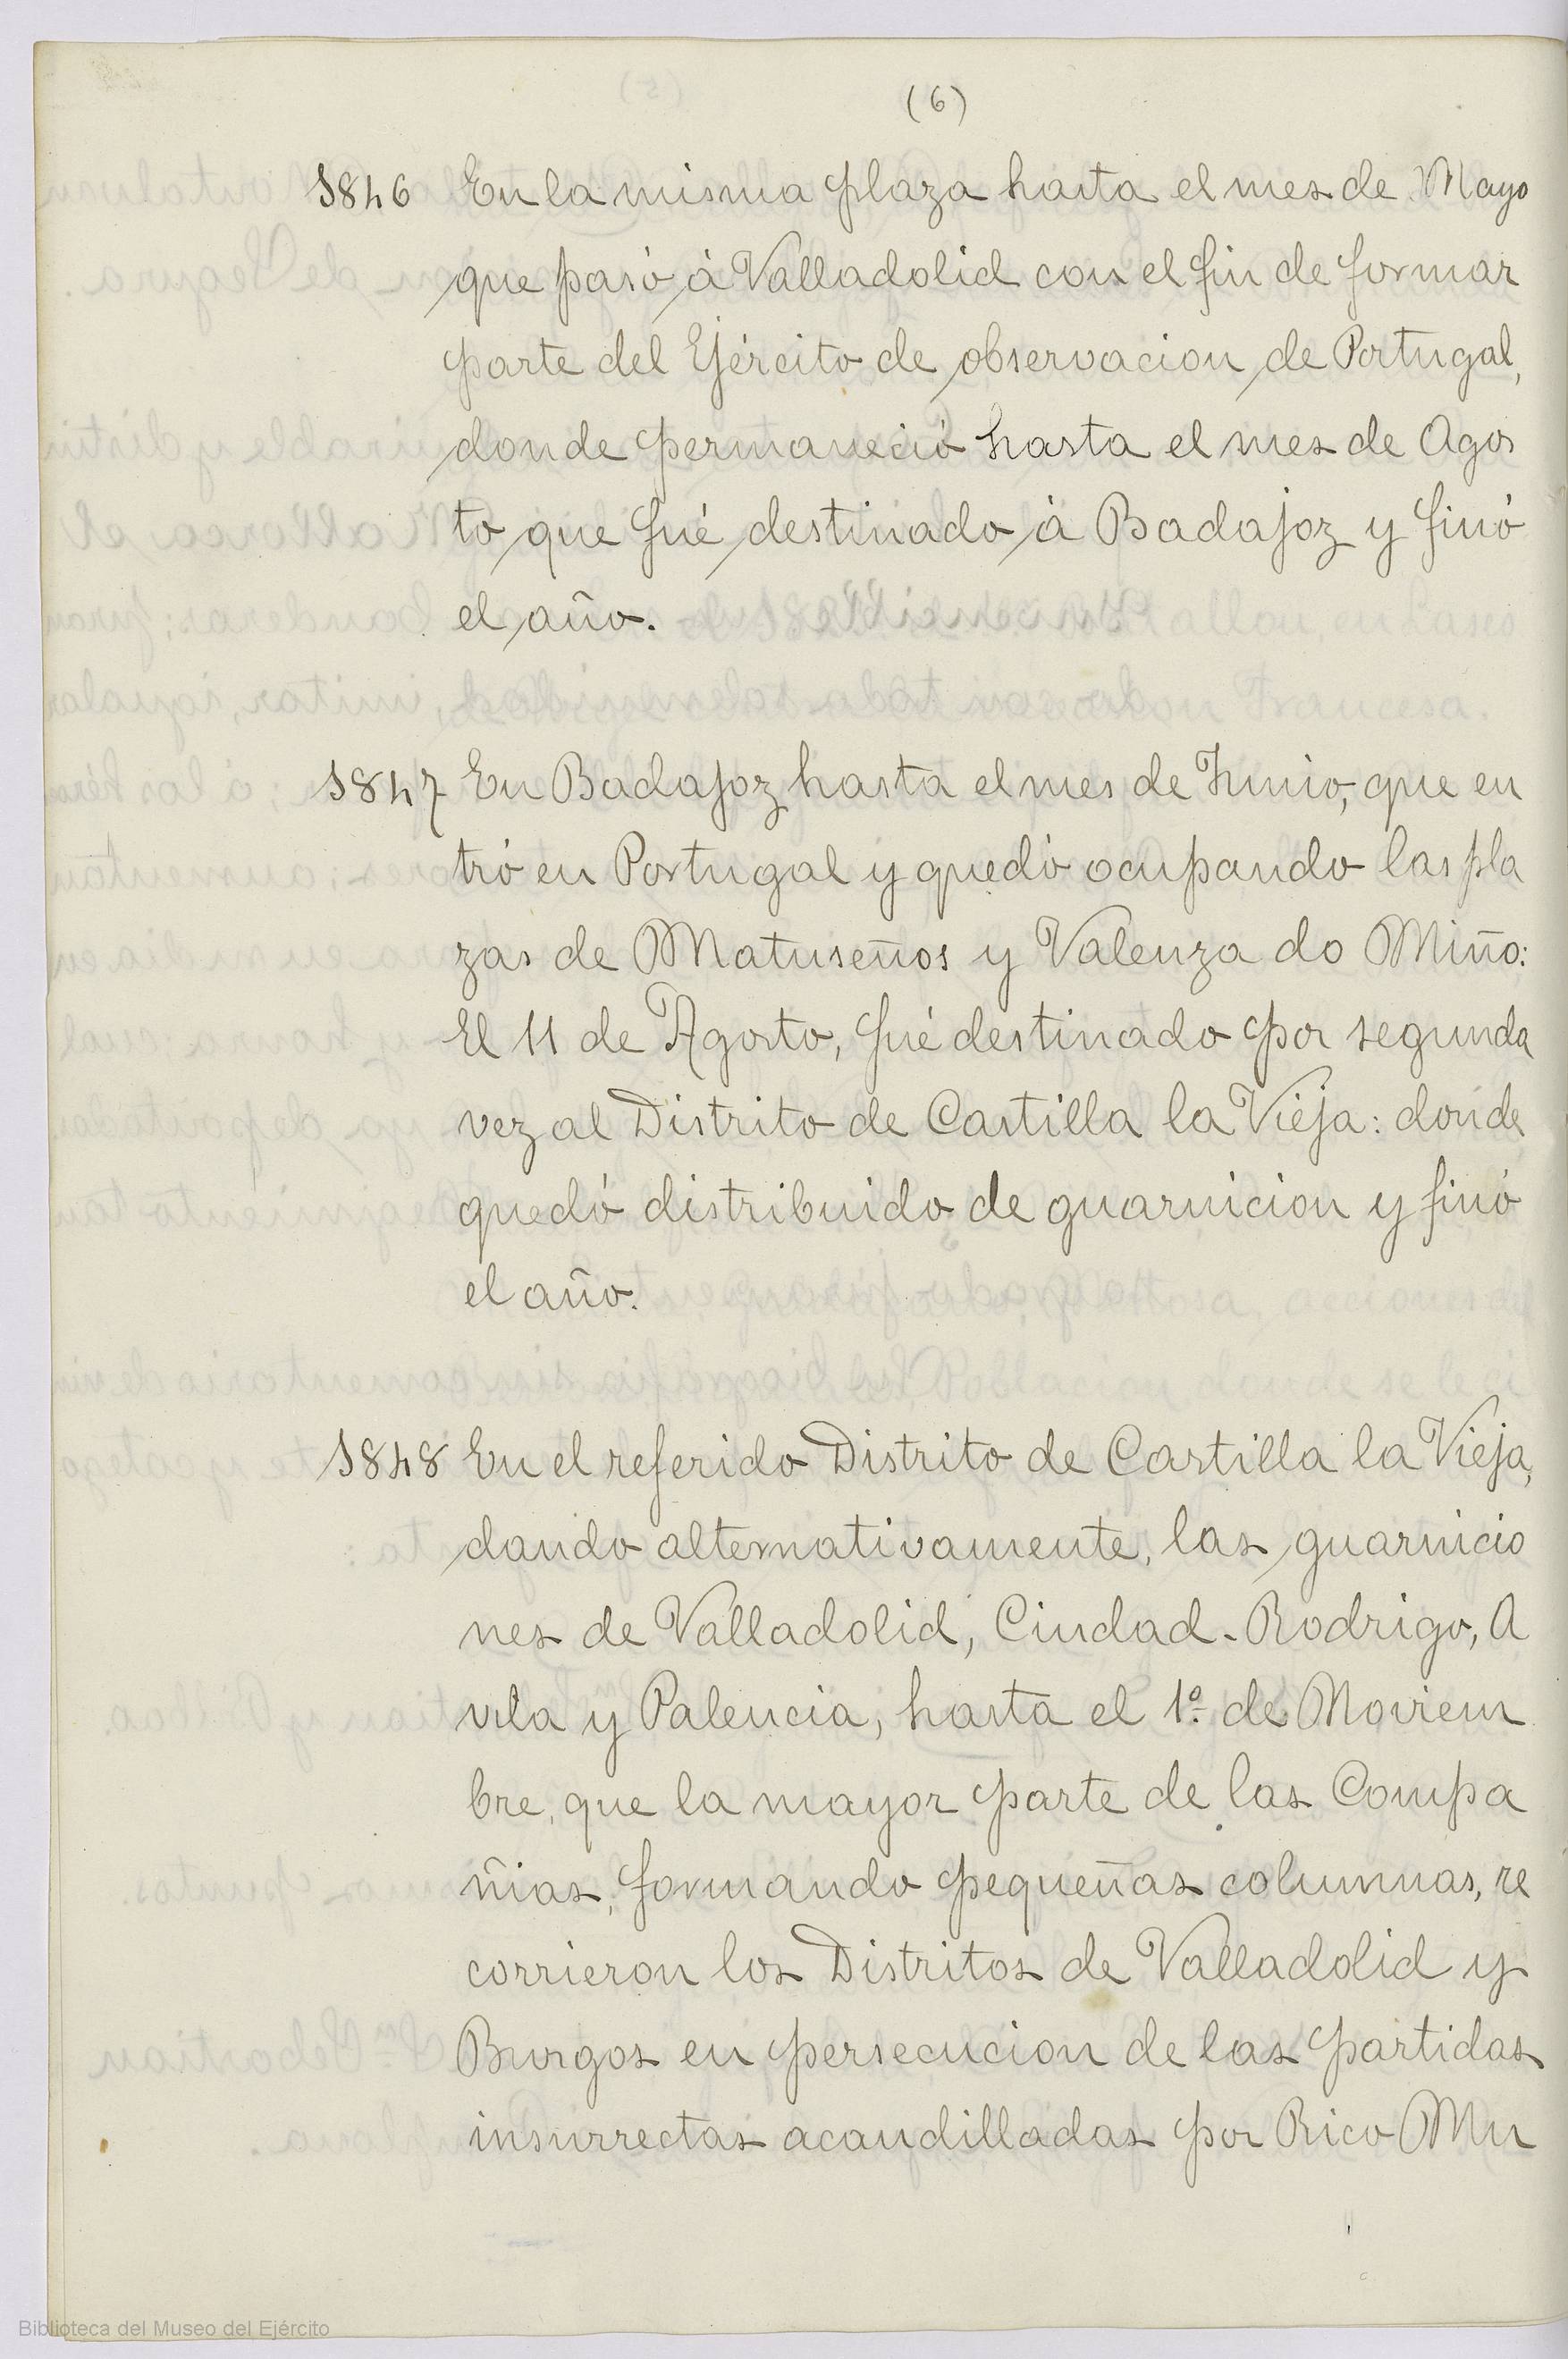 (6)
1846 En la misma plaza hasta el mes de Mayo
que pasó á Valladolid con el fin de formar
parte del Ejército de observacion de Portugal,
donde permaneció hasta el mes de Agos
to que fué destinado á Badajoz y finó
el año.
1847 En Badajoz hasta el mes de Junio, que en
tró en Portugal y quedó ocupando las pla
zas de Matuseños y Valenza do Miño:
El 11 de Agosto, fué destinado por segunda
vez al Distrito de Castilla la Vieja: donde
quedó distribuido de guarnicion y finó
el año.
1848 En el referido Distrito de Castilla la Vieja,
dando alternativamente, las guarnicio
nes de Valladolid, Ciudad-Rodrigo, A
vila y Palencia, hasta el 1º de Noviem
bre, que la mayor parte de las Compa
ñias, formando pequeñas columnas, re
corrieron los Distritos de Valladolid y
Burgos en persecucion de las partidas
insurrectas acaudilladas por Rico Mu
Biblioteca del Museo del Ejército